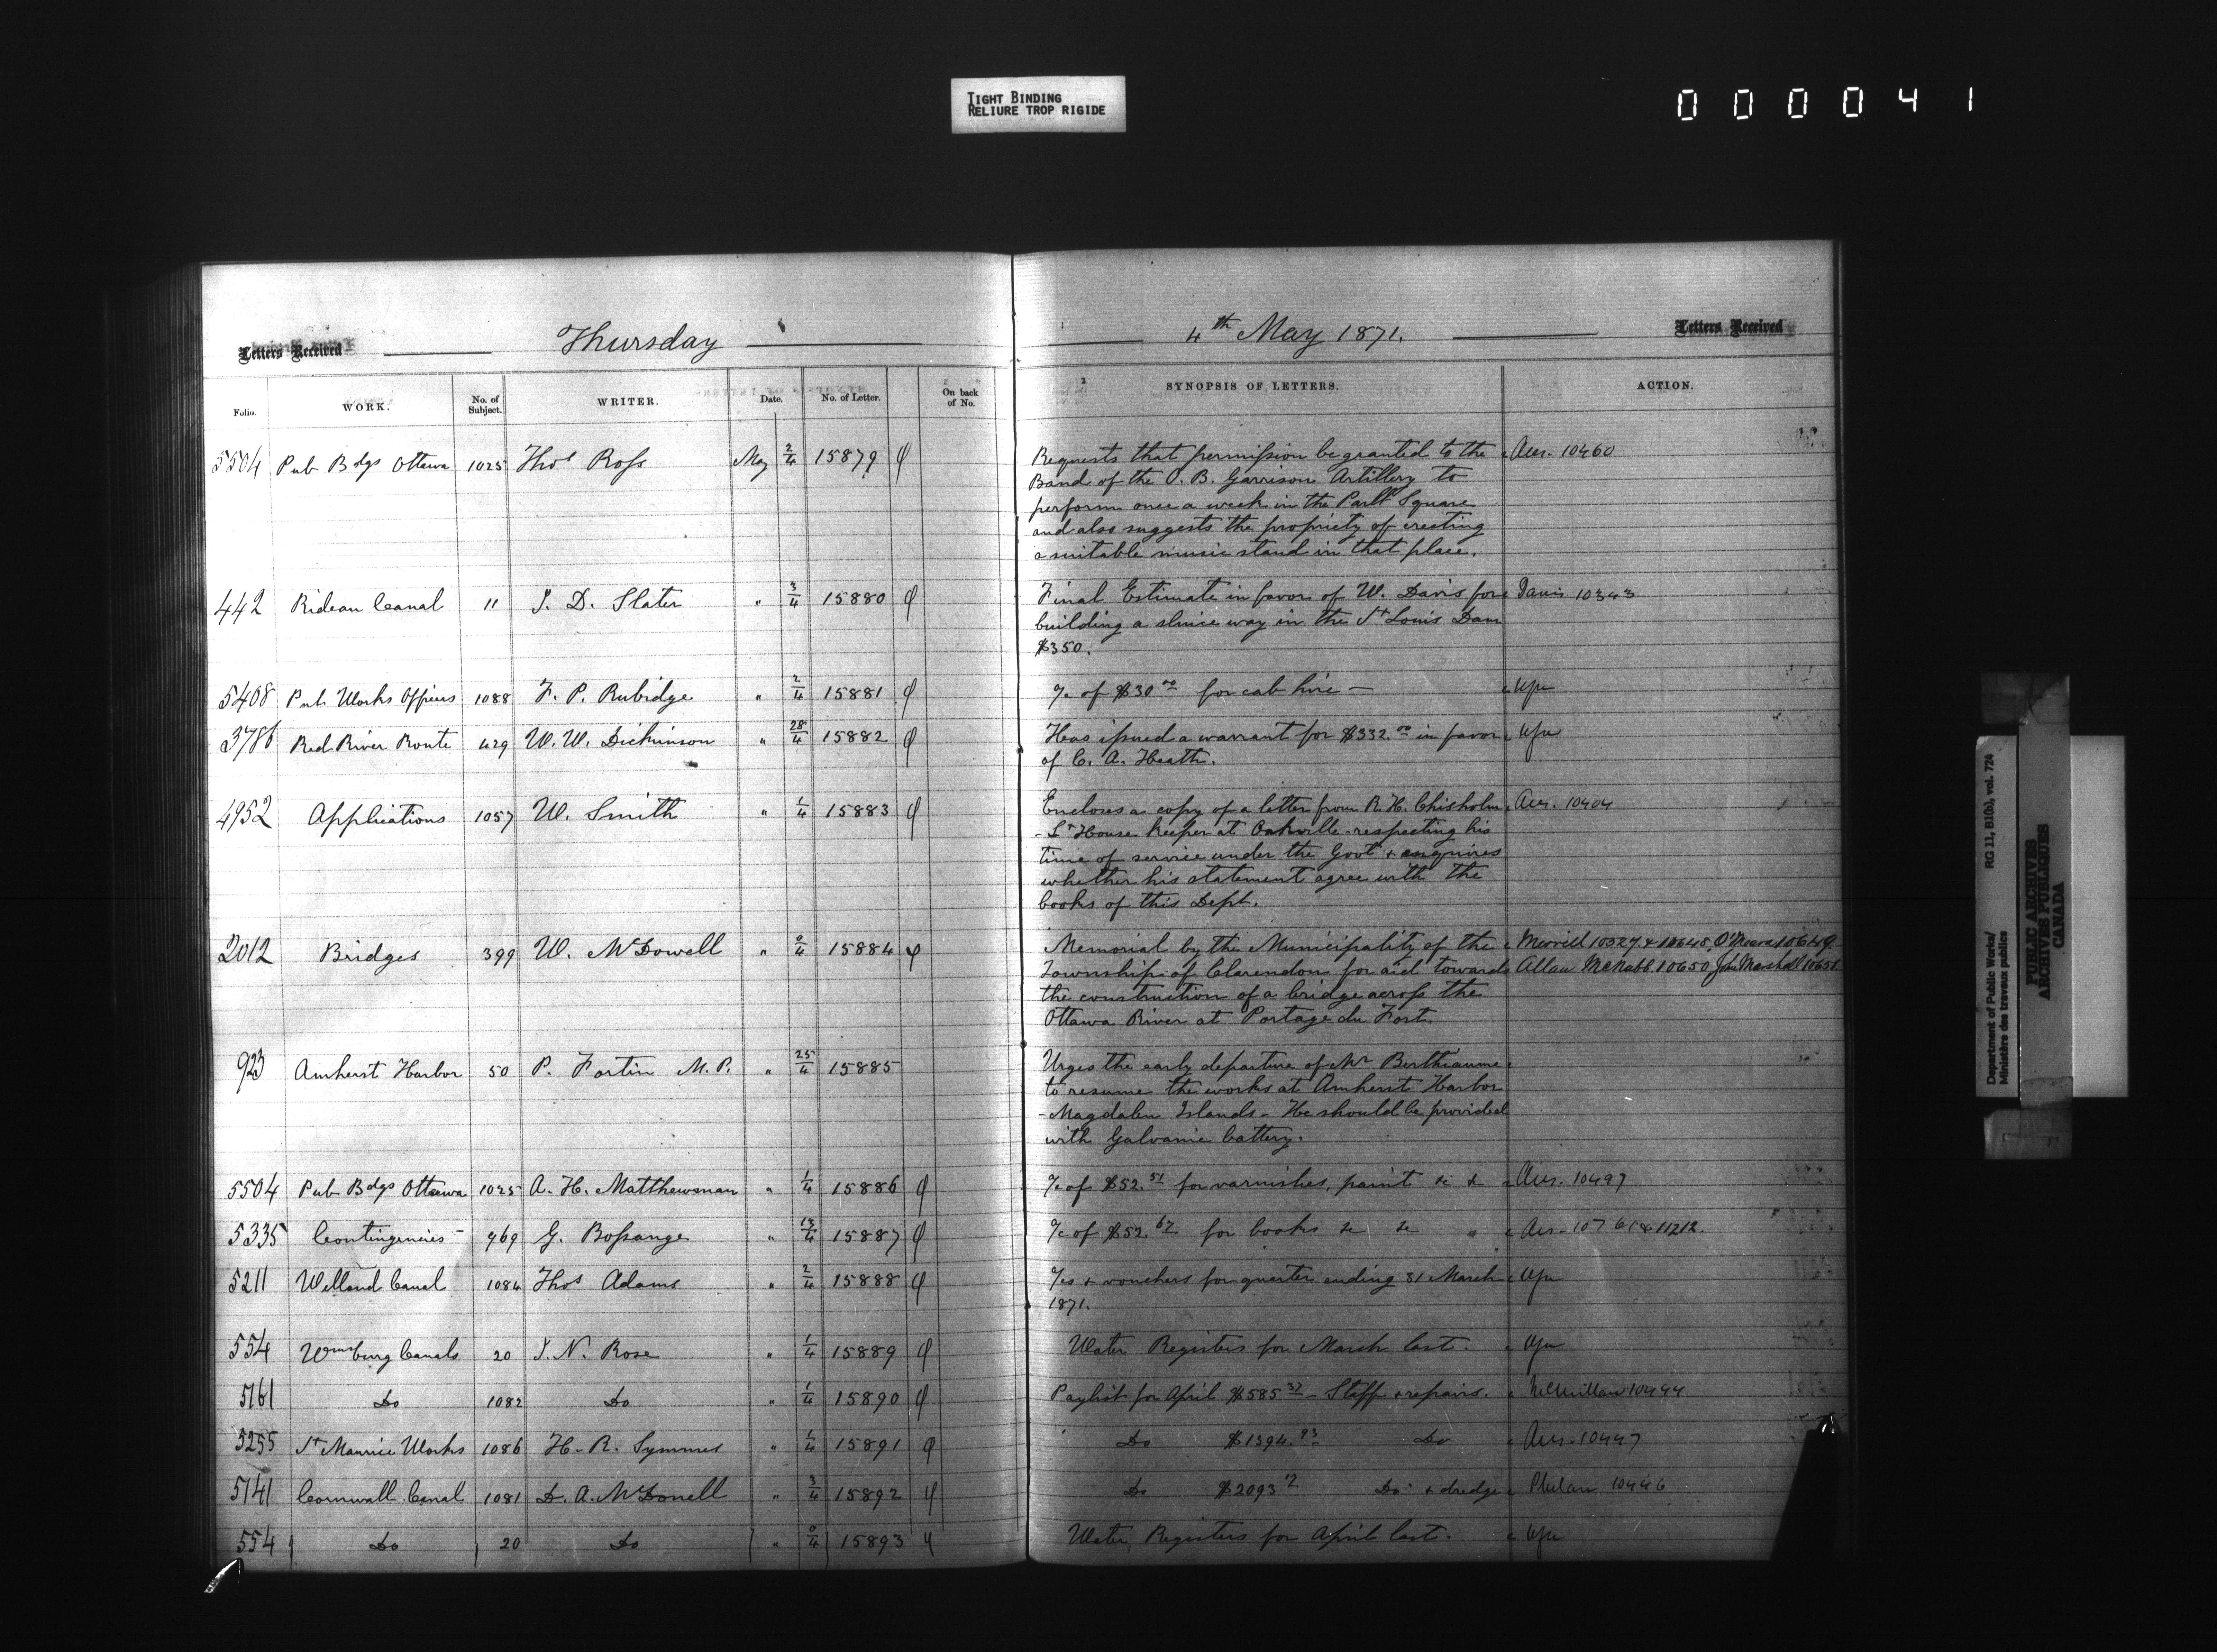 TIGHT BINDING
RELIURE TROP RIGIDE
000041
Letters Received
Thursday
4th May 1871.
Letters Received
Folio. WORK. No. of Subject. WRITER. Date. No. of Letter. On back of No. SYNOPSIS OF LETTERS. ACTION.
5504 Pub Bdgs Ottawa 1025 Thos Ross May 2/4 15879 Requests that permission be granted to the Ans. 10460
Band of the O. B. Garrison Artillery to
perform once a week in the Parlt Square
and also suggests the propriety of erecting
a suitable music stand in that place.
442 Rideau Canal 11 J. D. Slater " 3/4 15880 Final Estimate in favor of W. Davis for Davis 10343
building a sluice way in the St Louis Dam
$350.
5408 Pub Works Offices 1088 F. P. Rubidge " 2/4 15881 a/c of $30.00 for cab hire —
3786 Red River Route 429 W. W. Dickinson " 28/4 15882 Has issued a warrant for $332.00 in favor
of C. A. Heath.
4952 Applications 1057 W. Smith " 1/4 15883 Encloses a copy of a letter from R. H. Chisholm Ans. 10404
- Lt House keeper at Oakville - respecting his
time of service under the Govt & enquires
whether his statement agree with the
books of this Dept.
2012 Bridges 399 W. McDowell " 0/4 15884 Memorial by the Municipality of the Merrill 10327 & 10648, O'Meara 10649
Township of Clarendon for aid towards Allan McNabb 10650 John Marshall 10651
the construction of a bridge across the
Ottawa River at Portage du Fort.
923 Amherst Harbor 50 P. Fortin M.P. " 25/4 15885 Urges the early departure of Mr Berthiaume
to resume the works at Amherst Harbor
- Magdalen Islands - He should be provided
with Galvanic battery.
5504 Pub Bdgs Ottawa 1025 A. H. Matthewman " 1/4 15886 a/c of $52.51 for varnishes, paint &c &c Ans. 10497
5335 Contingencies 969 G. Bossange " 13/4 15887 a/c of $52.62 for books &c &c Ans. 10761 & 11212.
5211 Welland Canal 1084 Thos Adams " 2/4 15888 a/cs & vouchers for quarter ending 31 March
1871.
554 Wmsburg Canals 20 J. N. Rose " 1/4 15889 Water Registers for March last.
5161 Do 1082 Do " 1/4 15890 Paylist for April $585.37 - Staff & repairs. McMillan 10444
5255 St Maurice Works 1086 H. R. Symmes " 1/4 15891 Do $1394.93 Do Ans. 10447
5141 Cornwall Canal 1081 D. A. McDonell " 3/4 15892 Do $2093.12 Do & dredge Phelan 10446
554 Do 20 Do " 0/4 15893 Water Registers for April last.
Department of Public Works/ RG 11, B1(b), vol. 724
Ministère des travaux publics
PUBLIC ARCHIVES
ARCHIVES PUBLIQUES
CANADA